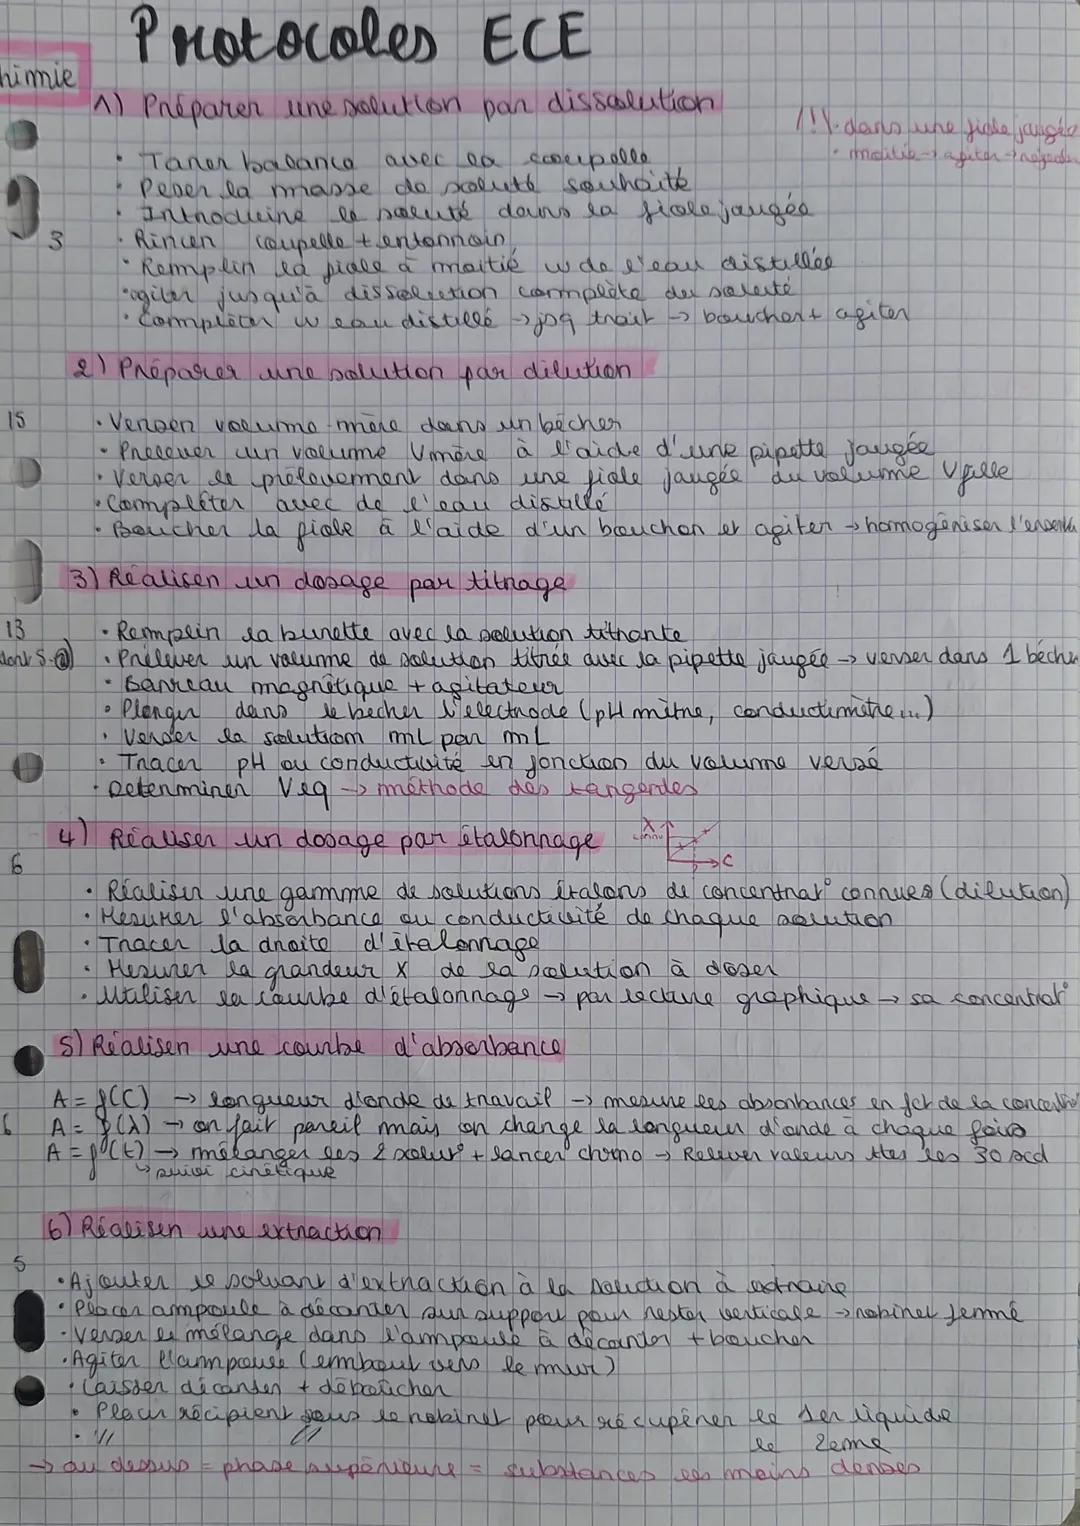 Protocoles ECE
himie
1) Préparer une solution par dissolution
/!\ · dans une fiole jaugée
• moitié → agiter →
• Tarer balance avec la coupelle
• Peser la masse de soluté souhaité
• Introduire le soluté dans la fiole jaugée
3
• Rincer coupelle + entonnoir
• Remplir la fiole à moitié w de l'eau distillée
• agiter jusqu'à dissolution complète du soluté
• Compléter w eau distillé → jsq trait → boucher + agiter
2) Préparer une solution par dilution
15
• Verser volume mère dans un bécher
• Prélever un volume Vmère à l'aide d'une pipette jaugée
• Verser le prélèvement dans une fiole jaugée du volume Vfille
• Compléter avec de l'eau distillé
• Boucher la fiole à l'aide d'un bouchon et agiter → homogéniser l'ensem
3) Réaliser un dosage par titrage
13
dont 5
• Remplir la burette avec la solution titrante
• Prélever un volume de solution titrée avec la pipette jaugée → verser dans 1 béche
• Barreau magnétique + agitateur
• Plonger dans le bécher l'électrode (pH mètre, conductimètre...)
• Verser la solution mL par mL
• Tracer pH ou conductivité en fonction du volume versé
• Déterminer Veq → méthode des tangentes
4) Réaliser un dosage par étalonnage
X
C
6
• Réaliser une gamme de solutions étalons de concentrat° connues (dilution)
• Mesurer l'absorbance ou conductivité de chaque solution
• Tracer la droite d'étalonnage
• Mesurer la grandeur X de la solution à doser
• Utiliser la courbe d'étalonnage → par lecture graphique → sa concentrat°
5) Réaliser une courbe d'absorbance
A = f(C) → longueur d'onde de travail → mesure les absorbances en fct de la
6
A = f(λ) → on fait pareil mais on change la longueur d'onde à chaque fois
A = f(t) → mélanger les 2 solut° + lancer chrono → Relever valeurs ttes les 30 scd
↳ suivi cinétique
6) Réaliser une extraction
5
• Ajouter le solvant d'extraction à la solution à extraire
• Placer ampoule à décanter sur support pour rester verticale → robinet fermé
• Verser le mélange dans l'ampoule à décanter + boucher
• Agiter l'ampoule (embout vers le mur)
• Laisser décanter + déboucher
• Placer récipient sous le robinet pour récupérer le 1er liquide
• " " le 2eme
→ au dessus = phase supérieure = substances les moins denses